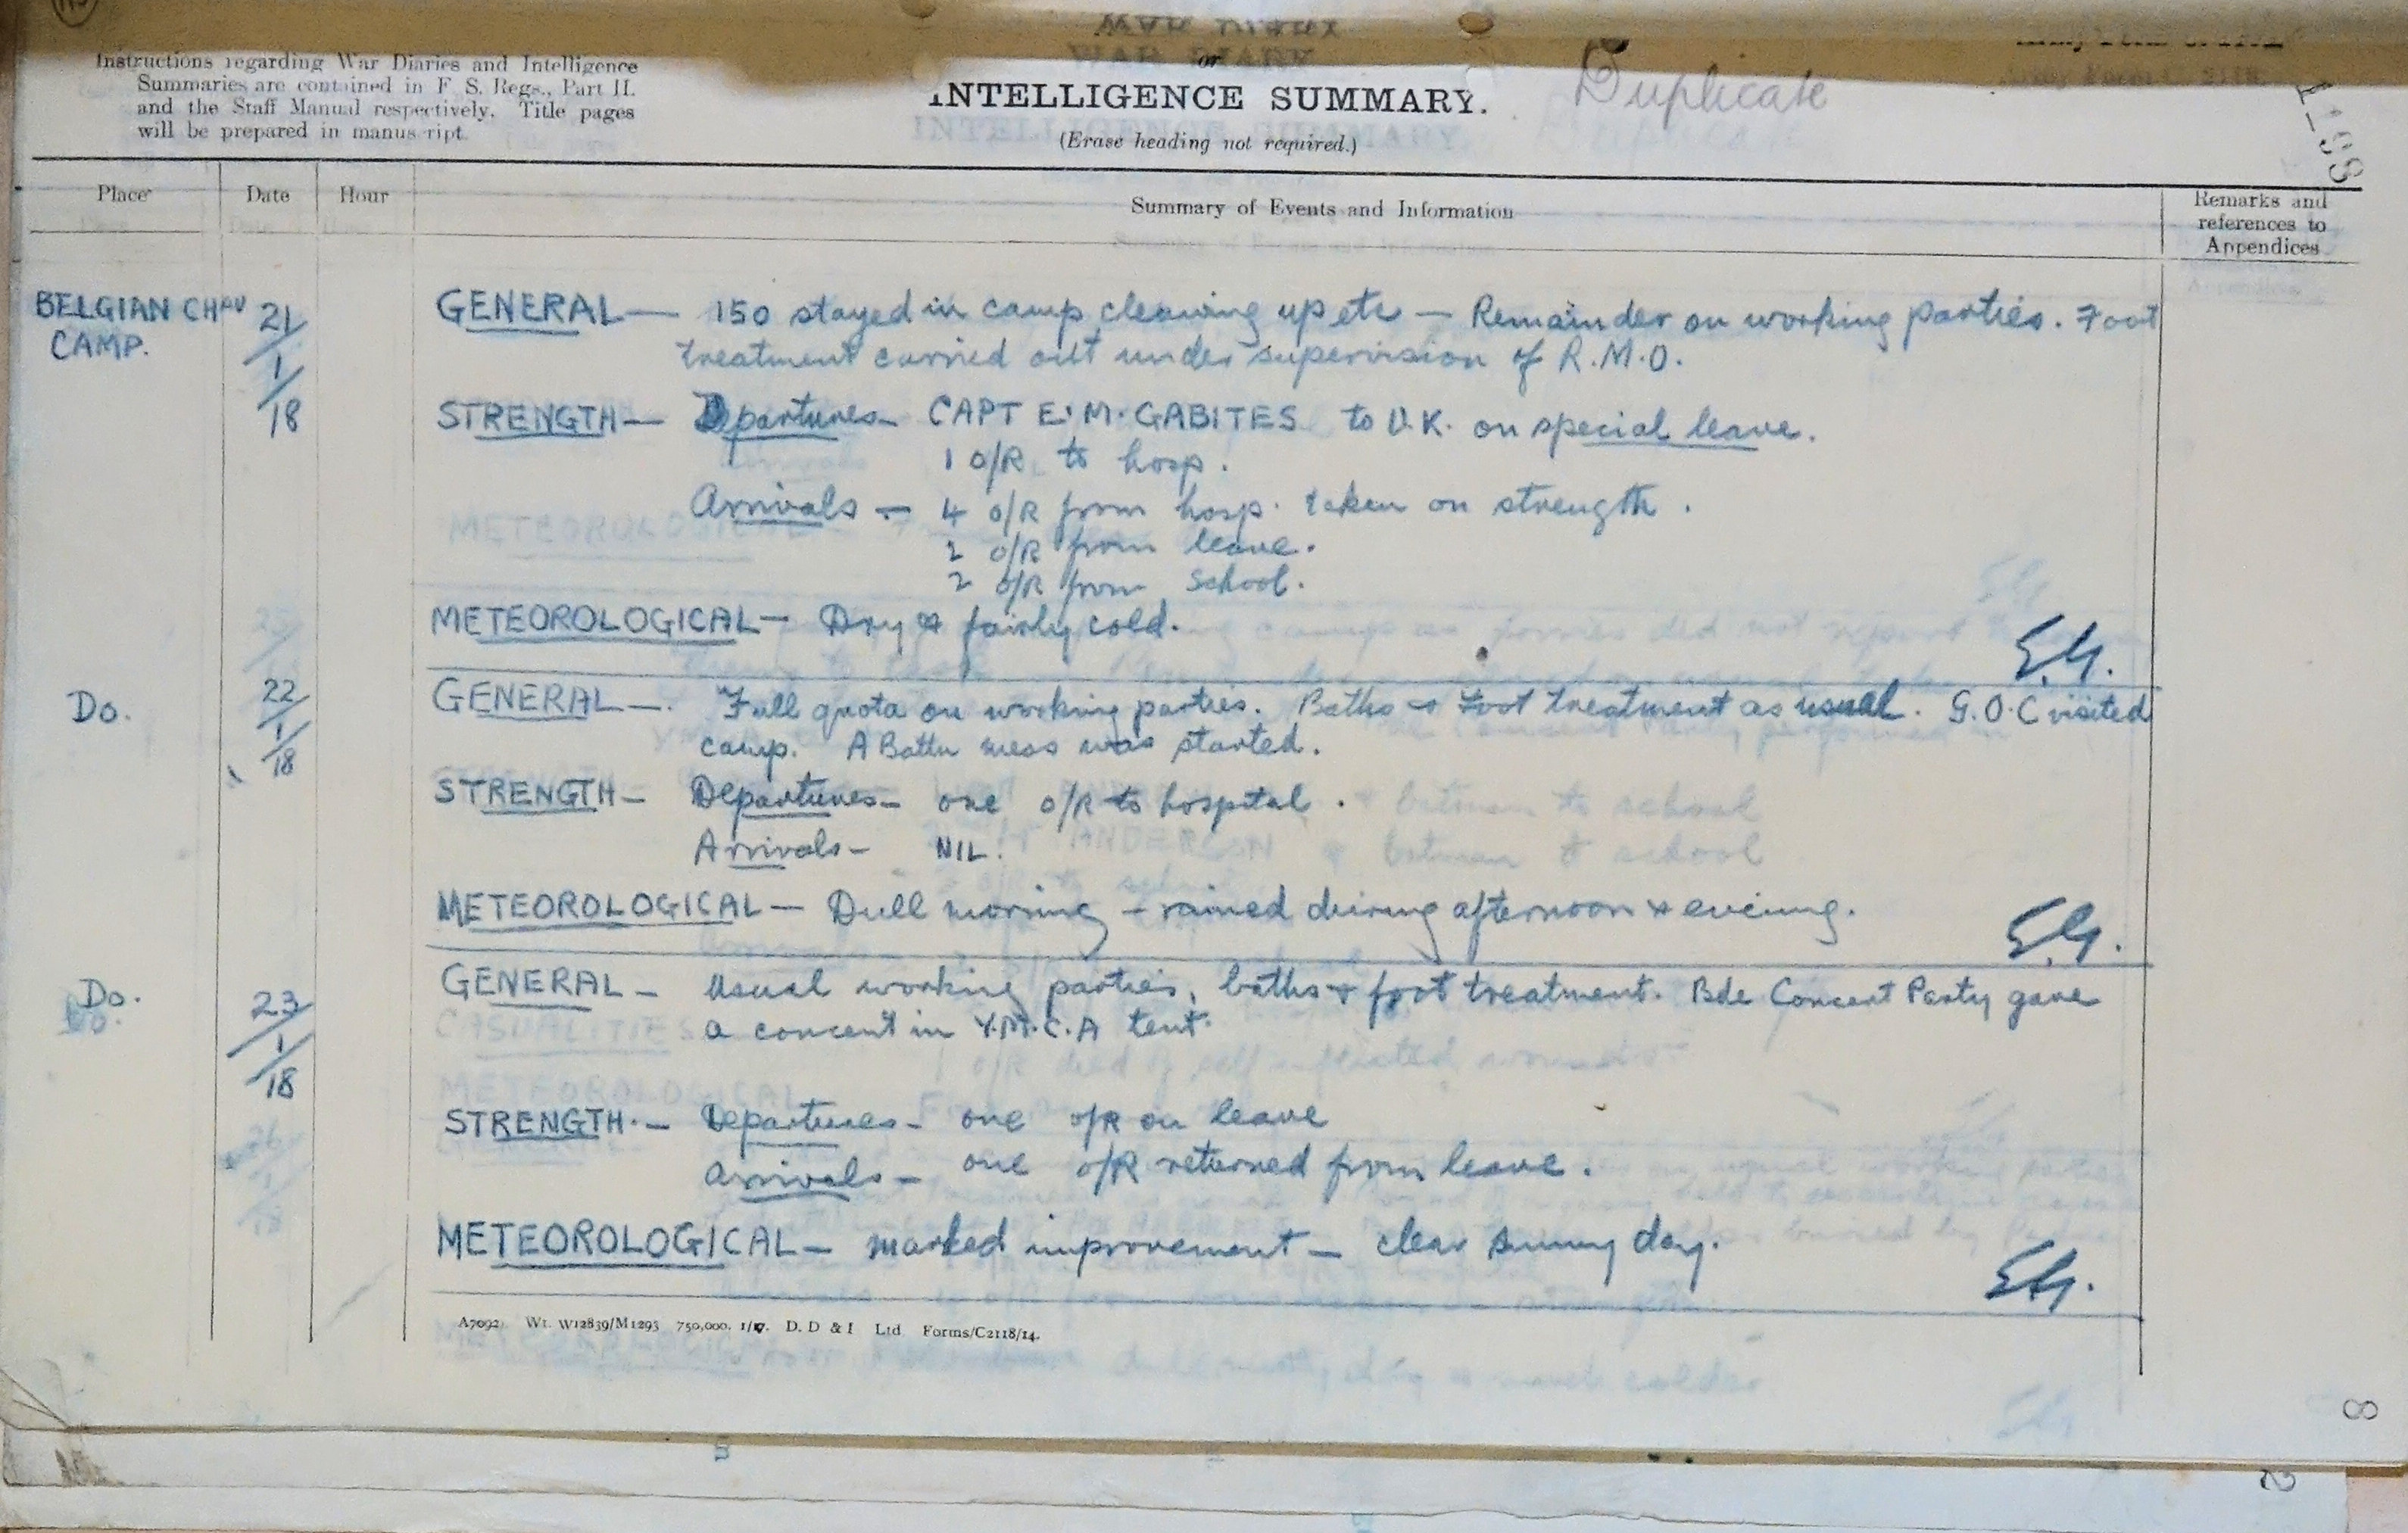 WAR DIARY
or
INTELLIGENCE SUMMARY.
(Erase heading not required.)
Duplicate
Instructions regarding War Diaries and Intelligence
Summaries are contained in F. S. Regs., Part II.
and the Staff Manual respectively. Title pages
will be prepared in manuscript.
Place Date Hour Summary of Events and Information Remarks and references to Appendices
BELGIAN CHAU CAMP. 21/1/18
GENERAL — 150 stayed in camp cleaning up etc — Remainder on working parties. Foot
treatment carried out under supervision of R.M.O.
STRENGTH — Departures — CAPT E. M. GABITES to U.K. on special leave.
1 O/R to hosp.
Arrivals — 4 O/R from hosp. taken on strength.
O/R from leave.
2 O/R from school.
METEOROLOGICAL — Dry & fairly cold.
E.G.
Do. 22/1/18
GENERAL — Full quota on working parties. Baths & Foot treatment as usual. G.O.C visited
camp. A Battn mess was started.
STRENGTH — Departures — one O/R to hospital.
Arrivals — NIL.
METEOROLOGICAL — Dull morning — rained during afternoon & evening.
E.G.
Do. 23/1/18
GENERAL — Usual working parties, baths & foot treatment. Bde Concert Party gave
a concert in Y.M.C.A tent.
STRENGTH. — Departures — one O/R on leave
Arrivals — one O/R returned from leave.
METEOROLOGICAL — marked improvement — clear sunny day.
E.G.
A7092. Wt. W12839/M1293 750,000. 1/17. D. D & I Ltd Forms/C2118/14.
8